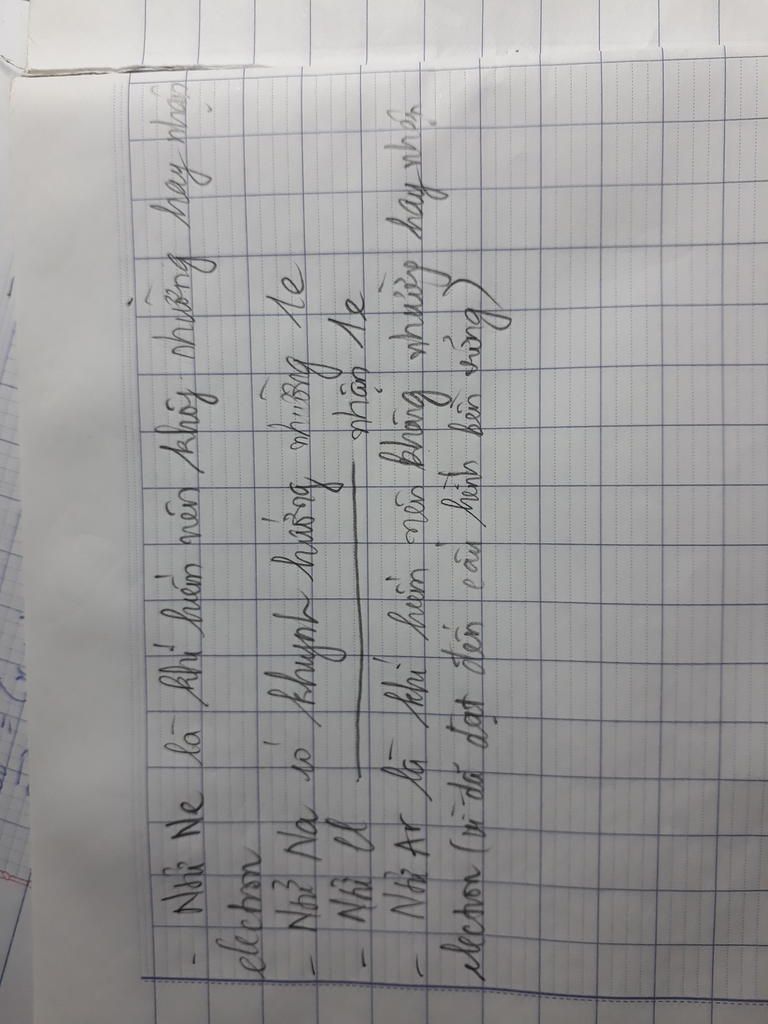 - Ntử Ne là khí hiếm nên khôg nhường hay nhận
electron
- Ntử Na có khuynh hướng nhường 1e
- Ntử Cl ——— nhận 1e
- Ntử Ar là khí hiếm nên không nhường hay nhận
electron (vì đã đạt đến cấu hình bền vững)